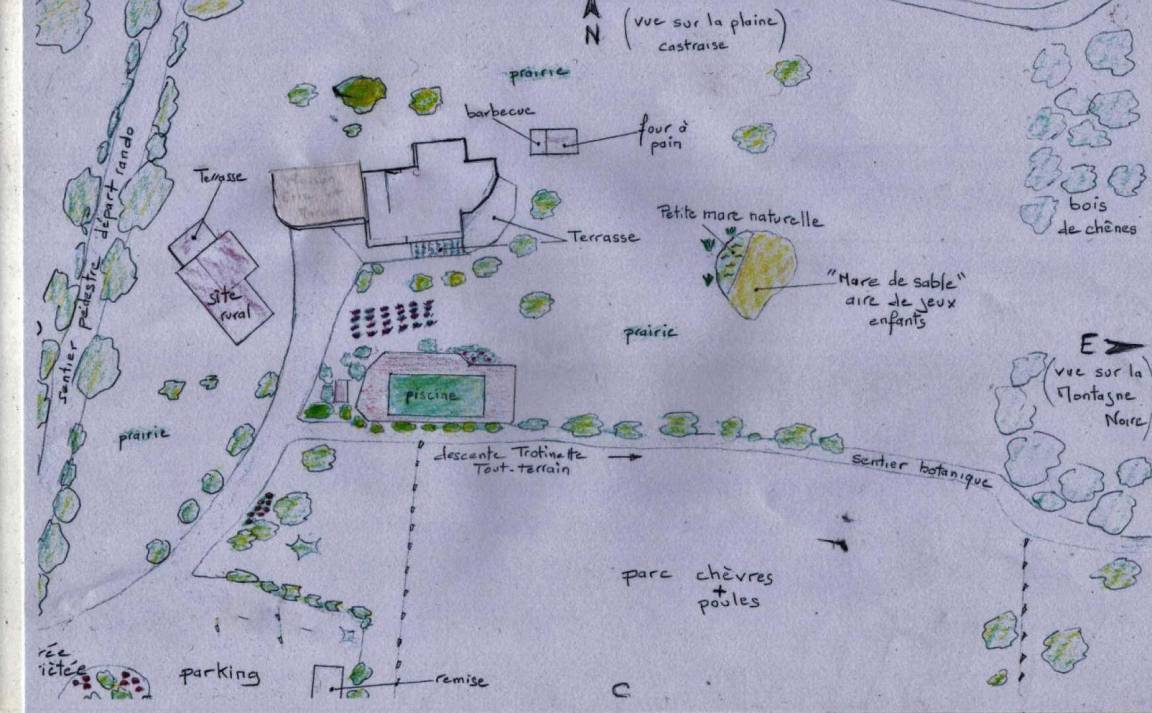 N
(vue sur la plaine)
castraise
prairie
barbecue
four à
pain
Terrasse
sentier pédestre départ rando
bois
de chênes
Petite mare naturelle
Terrasse
site
rural
"Mare de sable"
aire de jeux
enfants
prairie
E
(vue sur la
Montagne
Noire)
piscine
prairie
descente Trotinette
Tout-terrain
sentier botanique
parc chèvres
+
poules
parking
remise